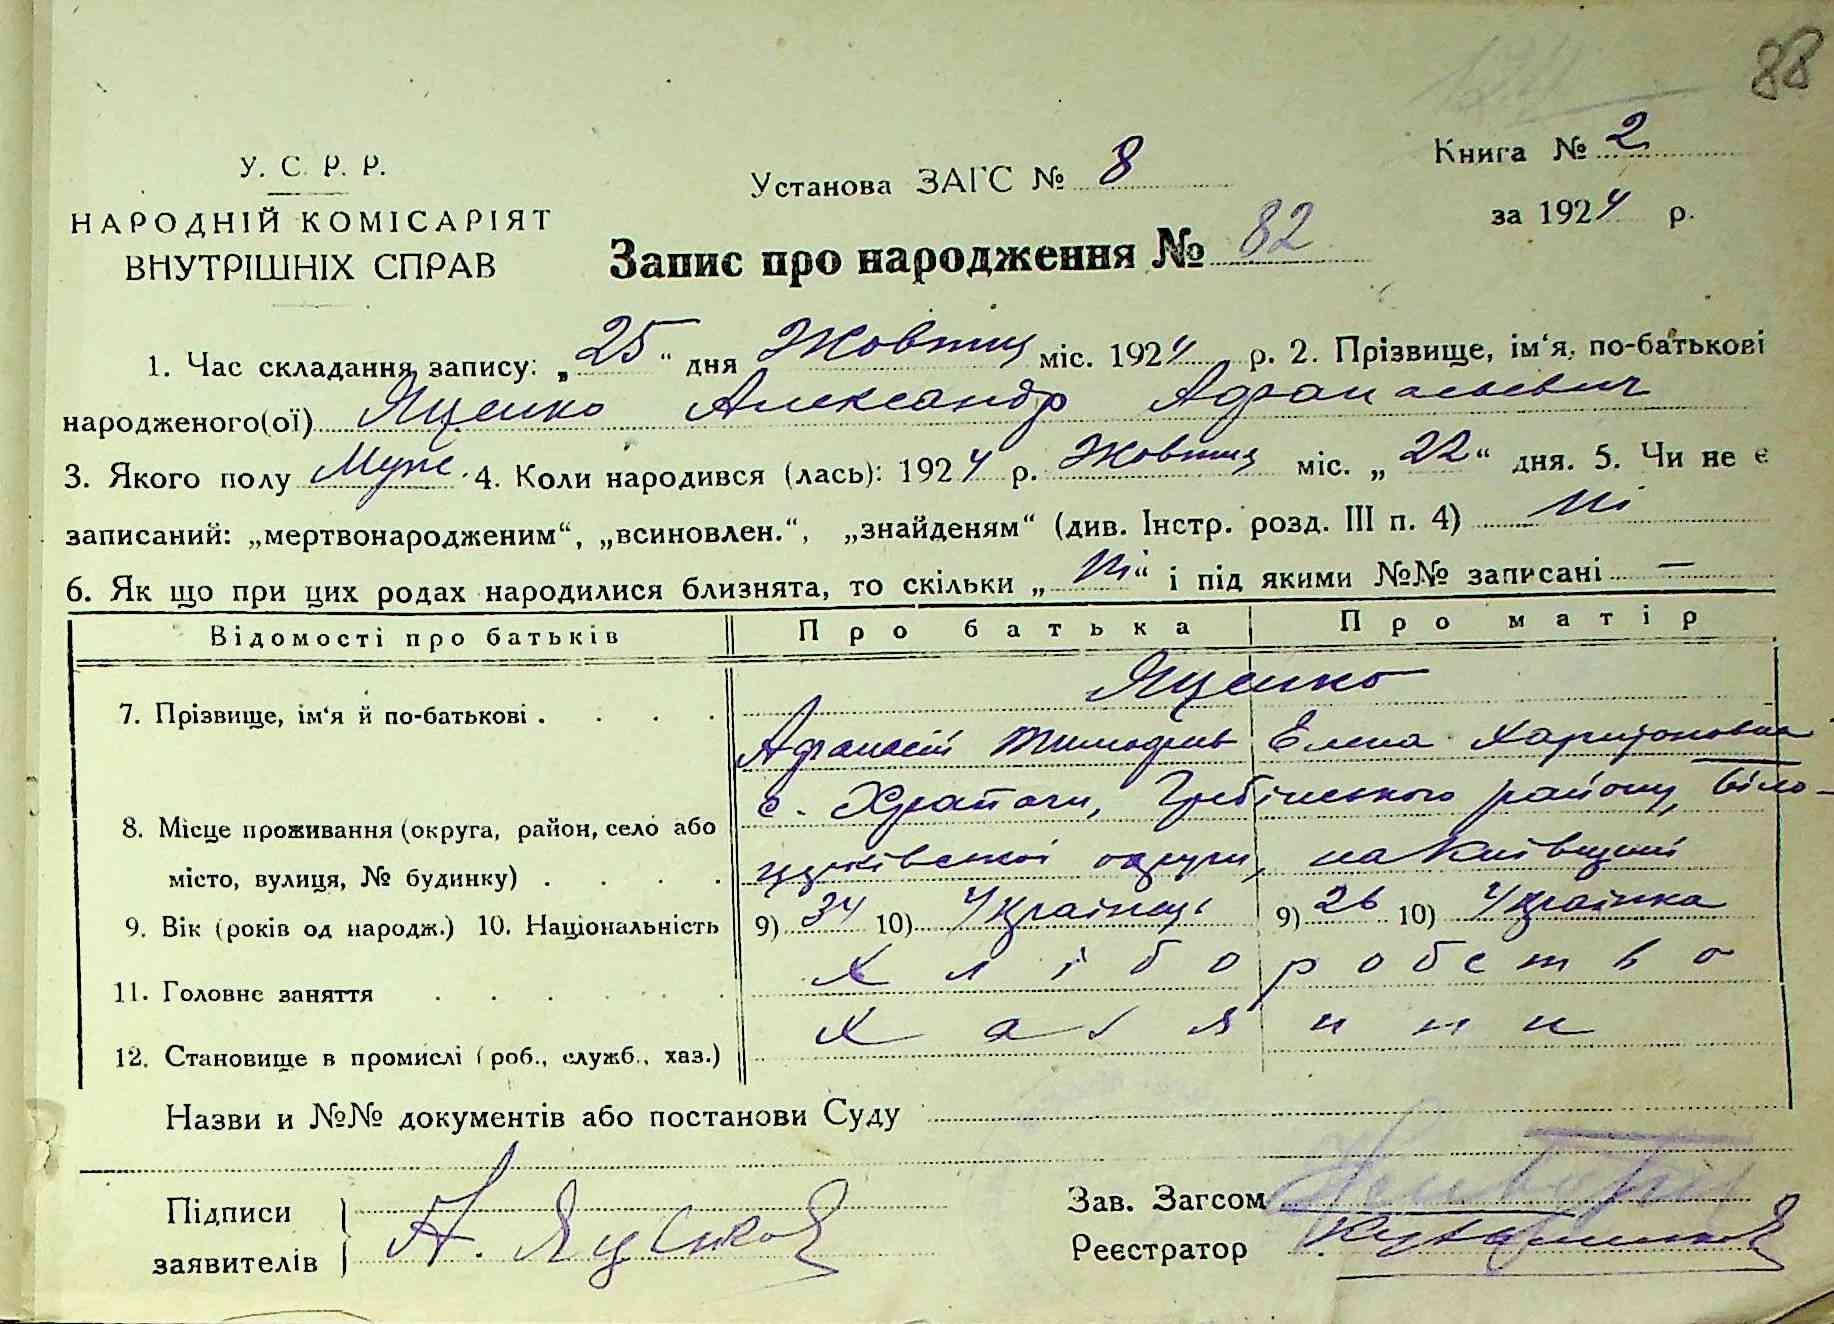 88
У. С. Р. Р.
НАРОДНІЙ КОМІСАРІЯТ
ВНУТРІШНІХ СПРАВ
Установа ЗАГС № 8
Книга № 2
за 1924 р.
Запис про народження № 82
1. Час складання запису: „25“ дня Жовтня міс. 1924 р. 2. Прізвище, ім‘я, по-батькові
народженого(ої) Яценко Александр Афанасьевич
3. Якого полу Муж. 4. Коли народився (лась): 1924 р. Жовтня міс. „22“ дня. 5. Чи не є
записаний: „мертвонародженим“, „всиновлен.“, „знайденям“ (див. Інстр. розд. III п. 4) Ні
6. Як що при цих родах народилися близнята, то скільки „Ні“ і під якими №№ записані —
Відомості про батьків Про батька Про матір
7. Прізвище, ім‘я й по-батькові . . . . Яценко
Афанасій Тимофіїв Елена Харитоновна
8. Місце проживання (округа, район, село або с. Храпачи, Гребінського району, Біло-
місто, вулиця, № будинку) . . . . церківської округи, на Київщині
9. Вік (років од народж.) 10. Національність 9) 34 10) Українець 9) 26 10) Українка
11. Головне заняття . . . . . . Хліборобство
12. Становище в промислі (роб., служб., хаз.) Хазяини
Назви и №№ документів або постанови Суду
Підписи
заявителів А. Яценко
Зав. Загсом
Реєстратор